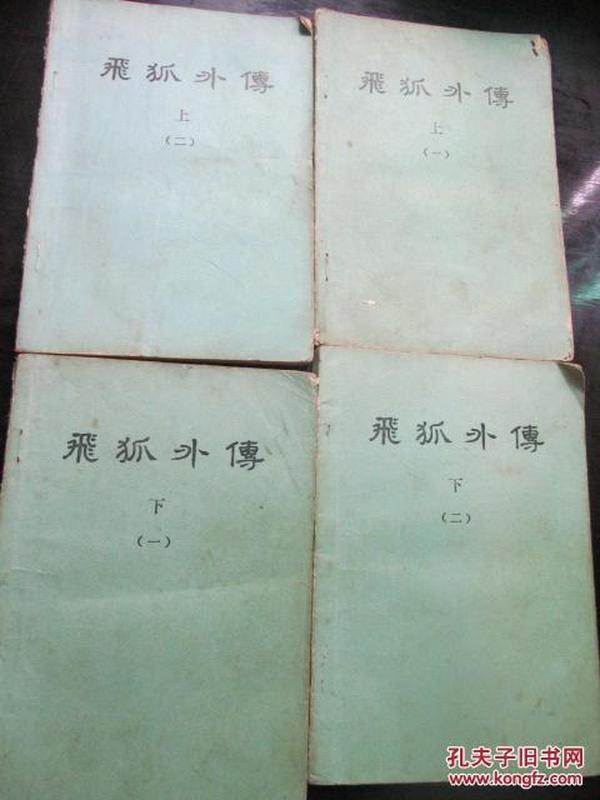 飛狐外傳
上
（二）
飛狐外傳
上
（一）
飛狐外傳
下
（一）
飛狐外傳
下
（二）
孔夫子旧书网
www.kongfz.com